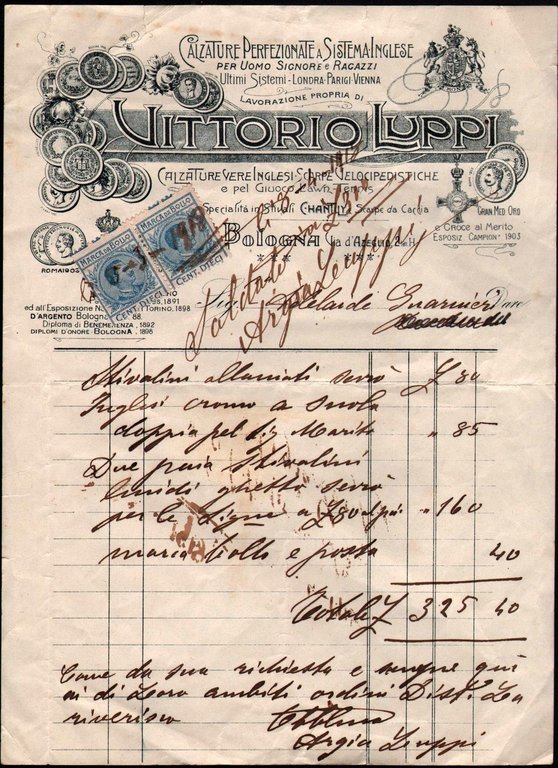 CALZATURE PERFEZIONATE A SISTEMA INGLESE
PER UOMO SIGNORE E RAGAZZI
ULTIMI SISTEMI - LONDRA - PARIGI - VIENNA
LAVORAZIONE PROPRIA DI
VITTORIO LUPPI
CALZATURE VERE INGLESI SCARPE VELOCIPEDISTICHE
E PEL GIUOCO LAWN-TENNIS
Specialità in Stivali CHANTILLY Scarpe da Caccia
BOLOGNA Via d'Azeglio
GRAN MED. ORO
E CROCE AL MERITO
ESPOSIZ. CAMPION 1903
ROMA 1903
MARCA DA BOLLO
MARCA DA BOLLO
CENT. DIECI
CENT. DIECI
5-3-1919
Saldato
Argia Luppi
1891
ed all'Esposizione TORINO, 1898
D'ARGENTO Bologna 88
Diploma di BENEMERENZA, 1892
DIPLOMI D'ONORE BOLOGNA, 1898
Adelaide Guarnieri Dare
Stivalini allacciati £ 80
Inglesi cromo a suola
doppia pel Sig Marito " 85
Due paia Stivalini
lucidi ghetta
per le Sigre a £ 80 al paio " 160
marca Bollo e posta 40
Totale £ 325 40
Come da sua richiesta e sempre
di Loro ambiti ordini Dist. La
riverisco
Argia Luppi